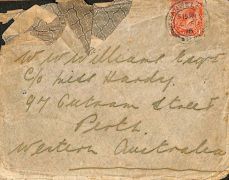 W W Williams Esqre
C/o Miss Hardy
97 Outram Street
Perth
Western Australia